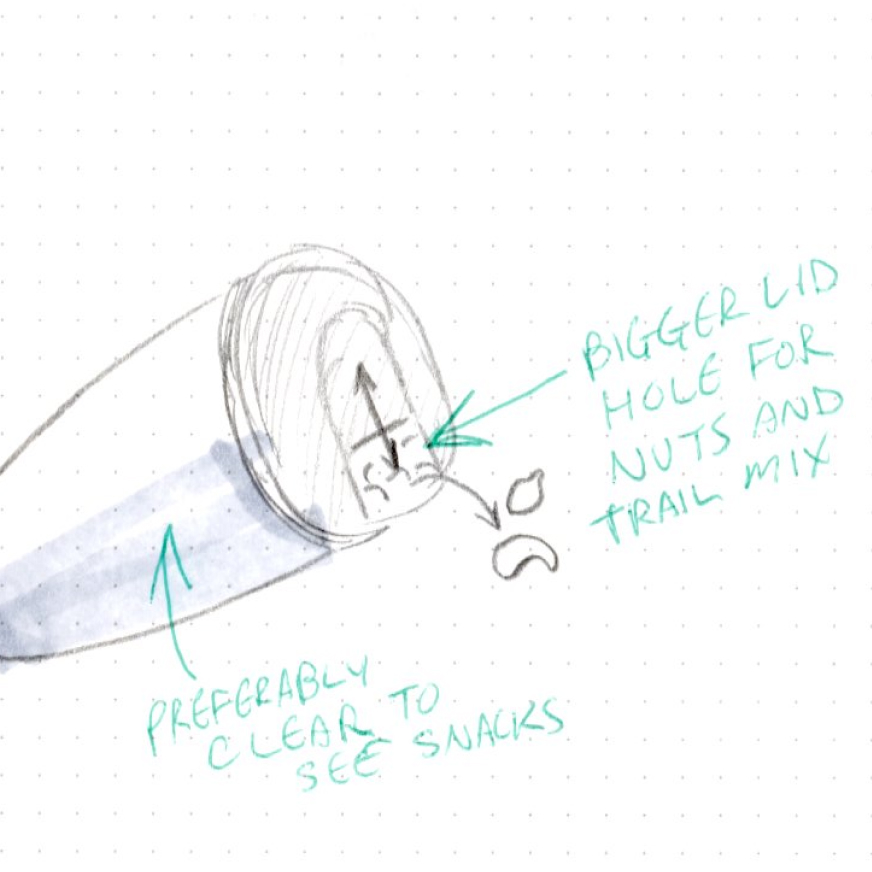 BIGGER LID
HOLE FOR
NUTS AND
TRAIL MIX
PREFERABLY
CLEAR TO
SEE SNACKS